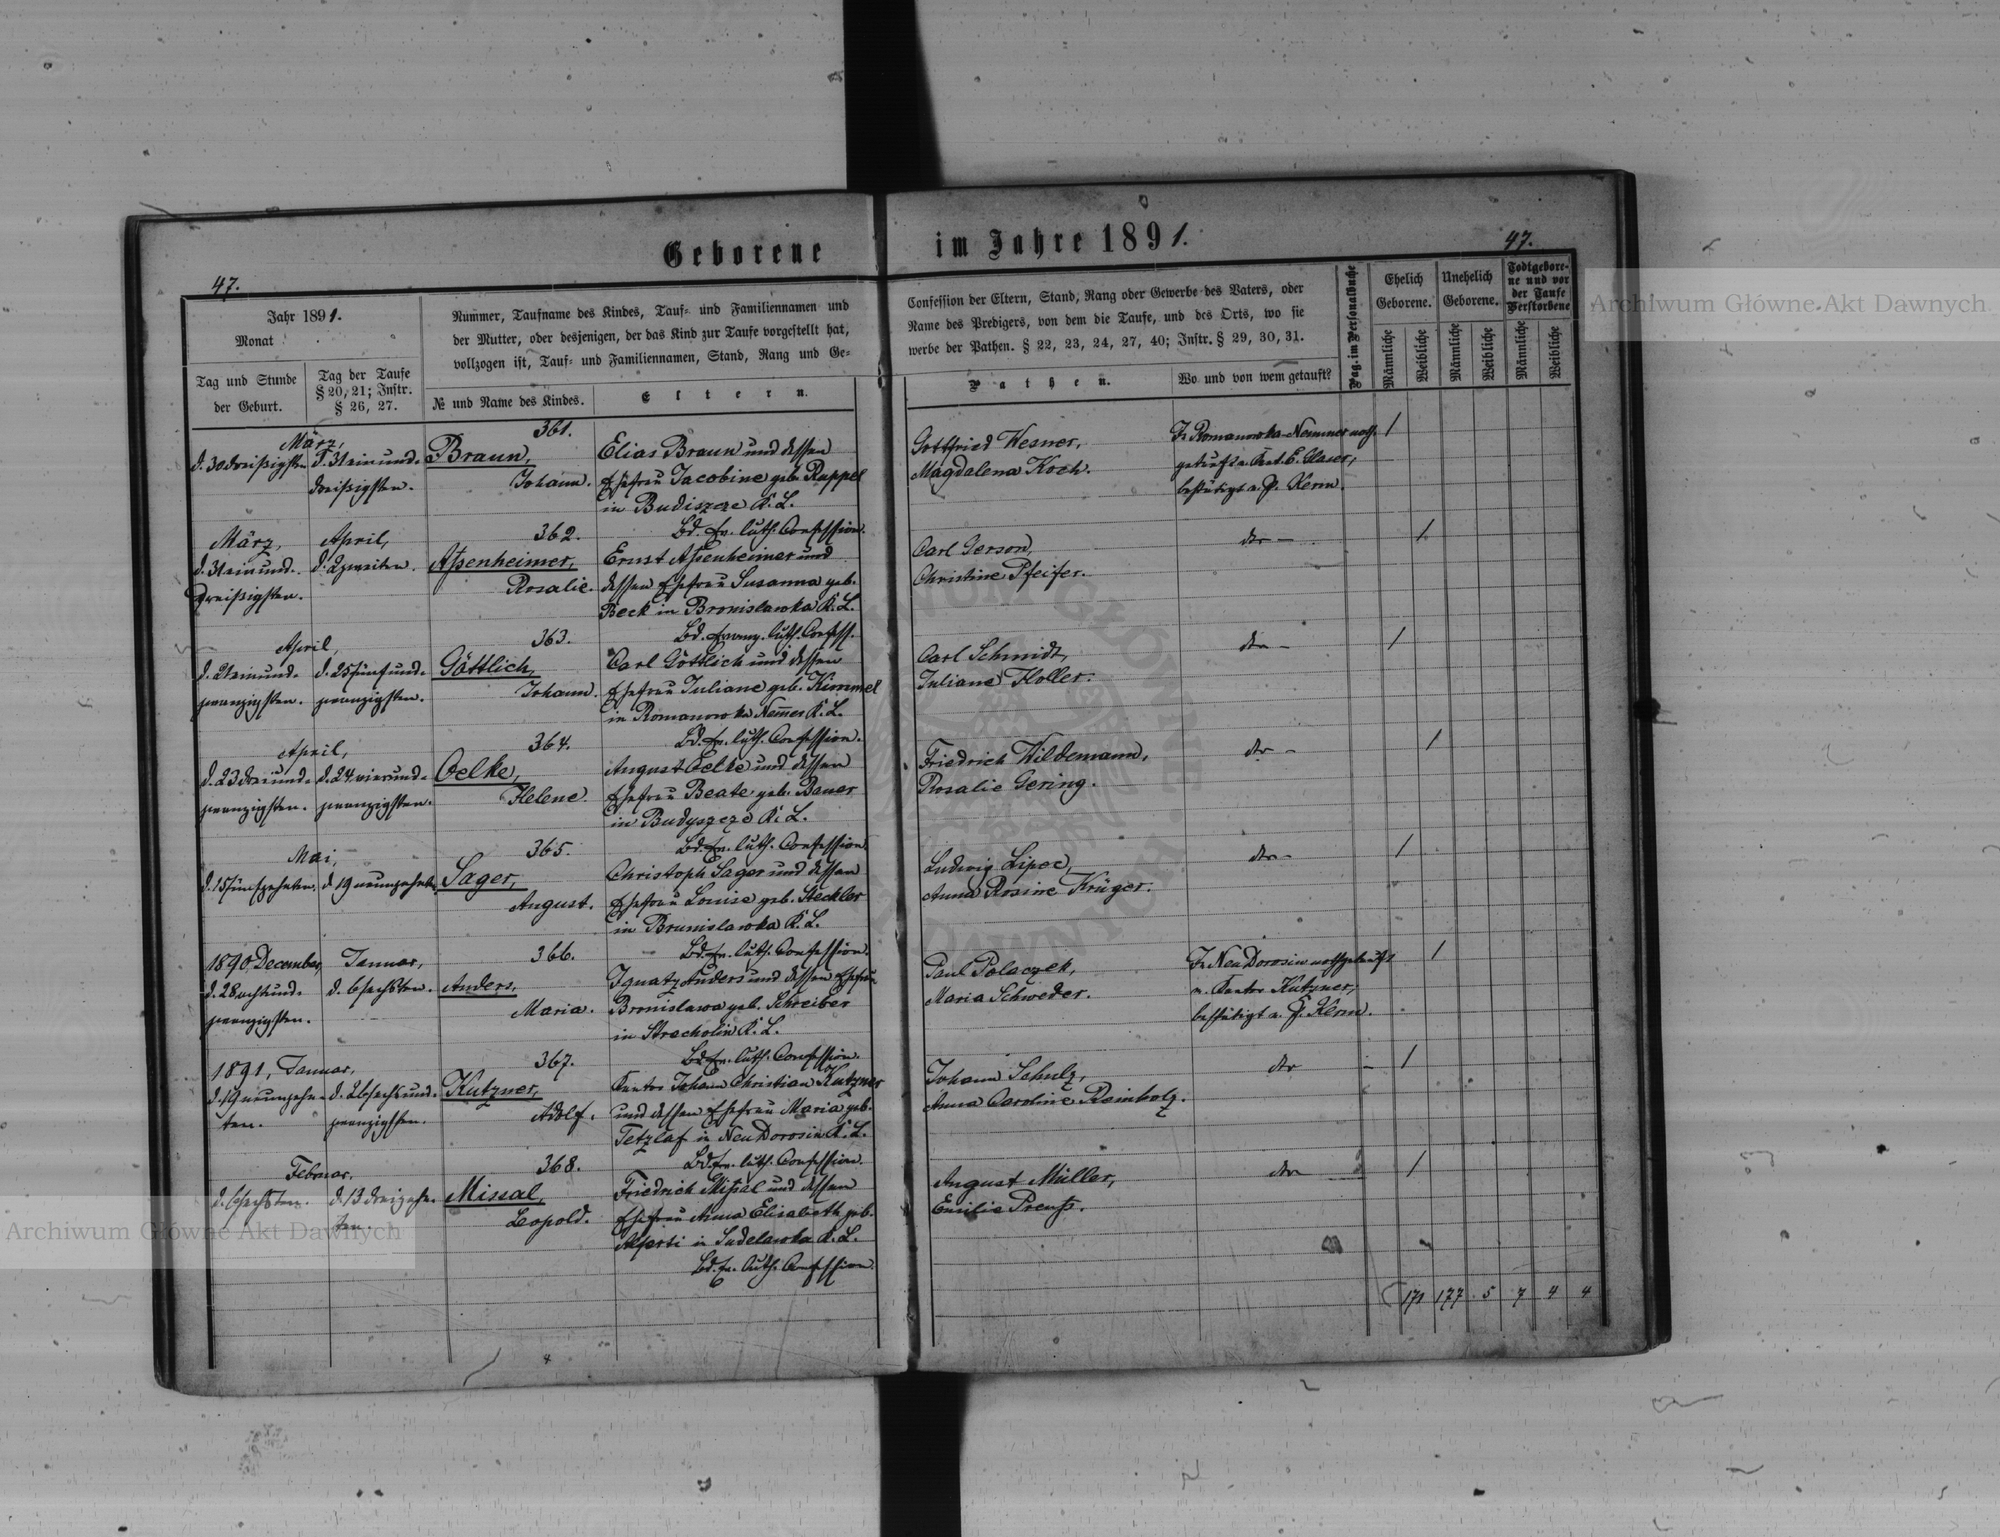 Geborene
im Jahre 1891.
47.
47.
Jahr 1891.
Monat
Tag und Stunde
der Geburt.
Tag der Taufe
§ 20, 21; Instr.
§ 26, 27.
Nummer, Taufname des Kindes, Tauf- und Familiennamen und
der Mutter, oder desjenigen, der das Kind zur Taufe vorgestellt hat,
vollzogen ist, Tauf- und Familiennamen, Stand, Rang und Ge-
№ und Name des Kindes.
Eltern.
Confession der Eltern, Stand, Rang oder Gewerbe des Vaters, oder
Name des Predigers, von dem die Taufe, und des Orts, wo sie
werbe der Pathen. § 22, 23, 24, 27, 40; Instr. § 29, 30, 31.
Pathen.
Wo und von wem getauft?
Pag. im Personalbuche
Ehelich
Geborene.
Unehelich
Geborene.
Todtgebore-
ne und vor
der Taufe
Verstorbene
Männliche
Weibliche
Männliche
Weibliche
Männliche
Weibliche
März,
d. 30 dreißigsten
d. 31 ein und-
dreißigsten.
361.
Braun,
Johann.
Elias Braun und dessen
Ehefrau Jacobine geb. Ruppel
in Budiszcze K. L.
Bd. Ev. luth. Confession.
Gottfried Wesner,
Magdalena Koch.
In Romanowka-Nemmer noth-
getauft v. Cant. E. Glaser,
bestätigt v. P. Kerm.
1
März,
d. 31 ein und-
dreißigsten.
April,
d. 2 zweiten.
362.
Assenheimer,
Rosalie.
Ernst Assenheimer und
dessen Ehefrau Susanna geb.
Beck in Bronislawka K. L.
Bd. Evang. luth. Confess.
Carl Gerson,
Christine Pfeifer.
dto -
1
April,
d. 21 ein und-
zwanzigsten.
d. 25 fünf und-
zwanzigsten.
363.
Göttlich,
Johann.
Carl Göttlich und dessen
Ehefrau Juliane geb. Kimmel
in Romanowka Nemer K. L.
Bd. Ev. luth. Confession.
Carl Schmidt,
Juliane Holler.
dto -
1
April,
d. 23 drei und-
zwanzigsten.
d. 24 vier und-
zwanzigsten.
364.
Oelke,
Helene.
August Oelke und dessen
Ehefrau Beate geb. Bauer
in Budyszcze K. L.
Bd. Ev. luth. Confession.
Friedrich Wildemann,
Rosalie Gering.
dto -
1
Mai,
d. 15 fünfzehnten.
d. 19 neunzehnten
365.
Sager,
August.
Christoph Sager und dessen
Ehefrau Louise geb. Steckler
in Brunislawka K. L.
Bd. Ev. luth. Confession.
Ludwig Lipec,
Anna Rosine Krüger.
dto -
1
1890, December,
d. 28 acht und-
zwanzigsten.
Januar,
d. 6 sechsten.
366.
Anders,
Maria.
Ignatz Anders und dessen Ehefrau
Bronislawa geb. Schreiber
in Stracholin K. L.
Bd. Ev. luth. Confession.
Paul Polaczek,
Maria Schweder.
In Neu Dorosin nothgetauft
v. Kantor Kutzner,
bestätigt v. P. Kerm.
1
1891, Januar,
d. 19 neunzehn-
ten.
d. 26 sechs und-
zwanzigsten.
367.
Kutzner,
Adolf.
Kantor Johann Christian Kutzner
und dessen Ehefrau Maria geb.
Tetzlaf in Neu Dorosin K. L.
Bd. Ev. luth. Confession.
Johann Schulz,
Anna Caroline Reinholz.
dto -
1
Februar,
d. 6 sechsten.
d. 13 dreizehn-
ten.
368.
Missal,
Leopold.
Friedrich Missal und dessen
Ehefrau Anna Elisabeth geb.
in Sadelawka K. L.
Bd. Ev. luth. Confession.
August Müller,
Emilie Preuß.
dto
1
171 177 5 7 4 4
Archiwum Główne Akt Dawnych
Archiwum Główne Akt Dawnych